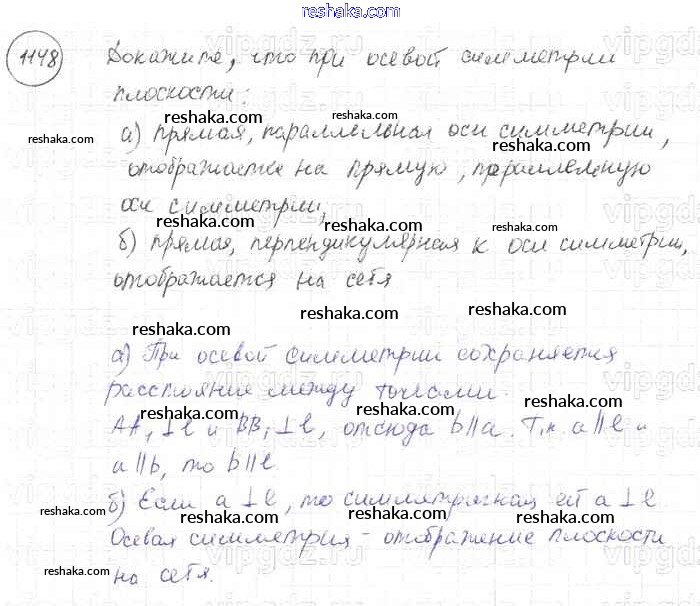 reshaka.com
1148 Докажите, что при осевой симметрии
плоскости:
reshaka.com
reshaka.com
а) прямая, параллельная оси симметрии,
reshaka.com
отображается на прямую, параллельную
оси симметрии,
reshaka.com
reshaka.com
б) прямая, перпендикулярная к оси симметрии,
reshaka.com
отображается на себя
reshaka.com
reshaka.com
reshaka.com
а) При осевой симметрии сохраняется
reshaka.com
расстояние между точками.
reshaka.com
reshaka.com
reshaka.com
AA₁⊥l и BB₁⊥l, отсюда b||a. Т.к. a||l и
a||b, то b||l.
reshaka.com
reshaka.com
б) Если a⊥l, то симметричная ей a⊥l.
reshaka.com
reshaka.com
reshaka.com
Осевая симметрия - отображение плоскости
на себя.
reshaka.com
reshaka.com
reshaka.com